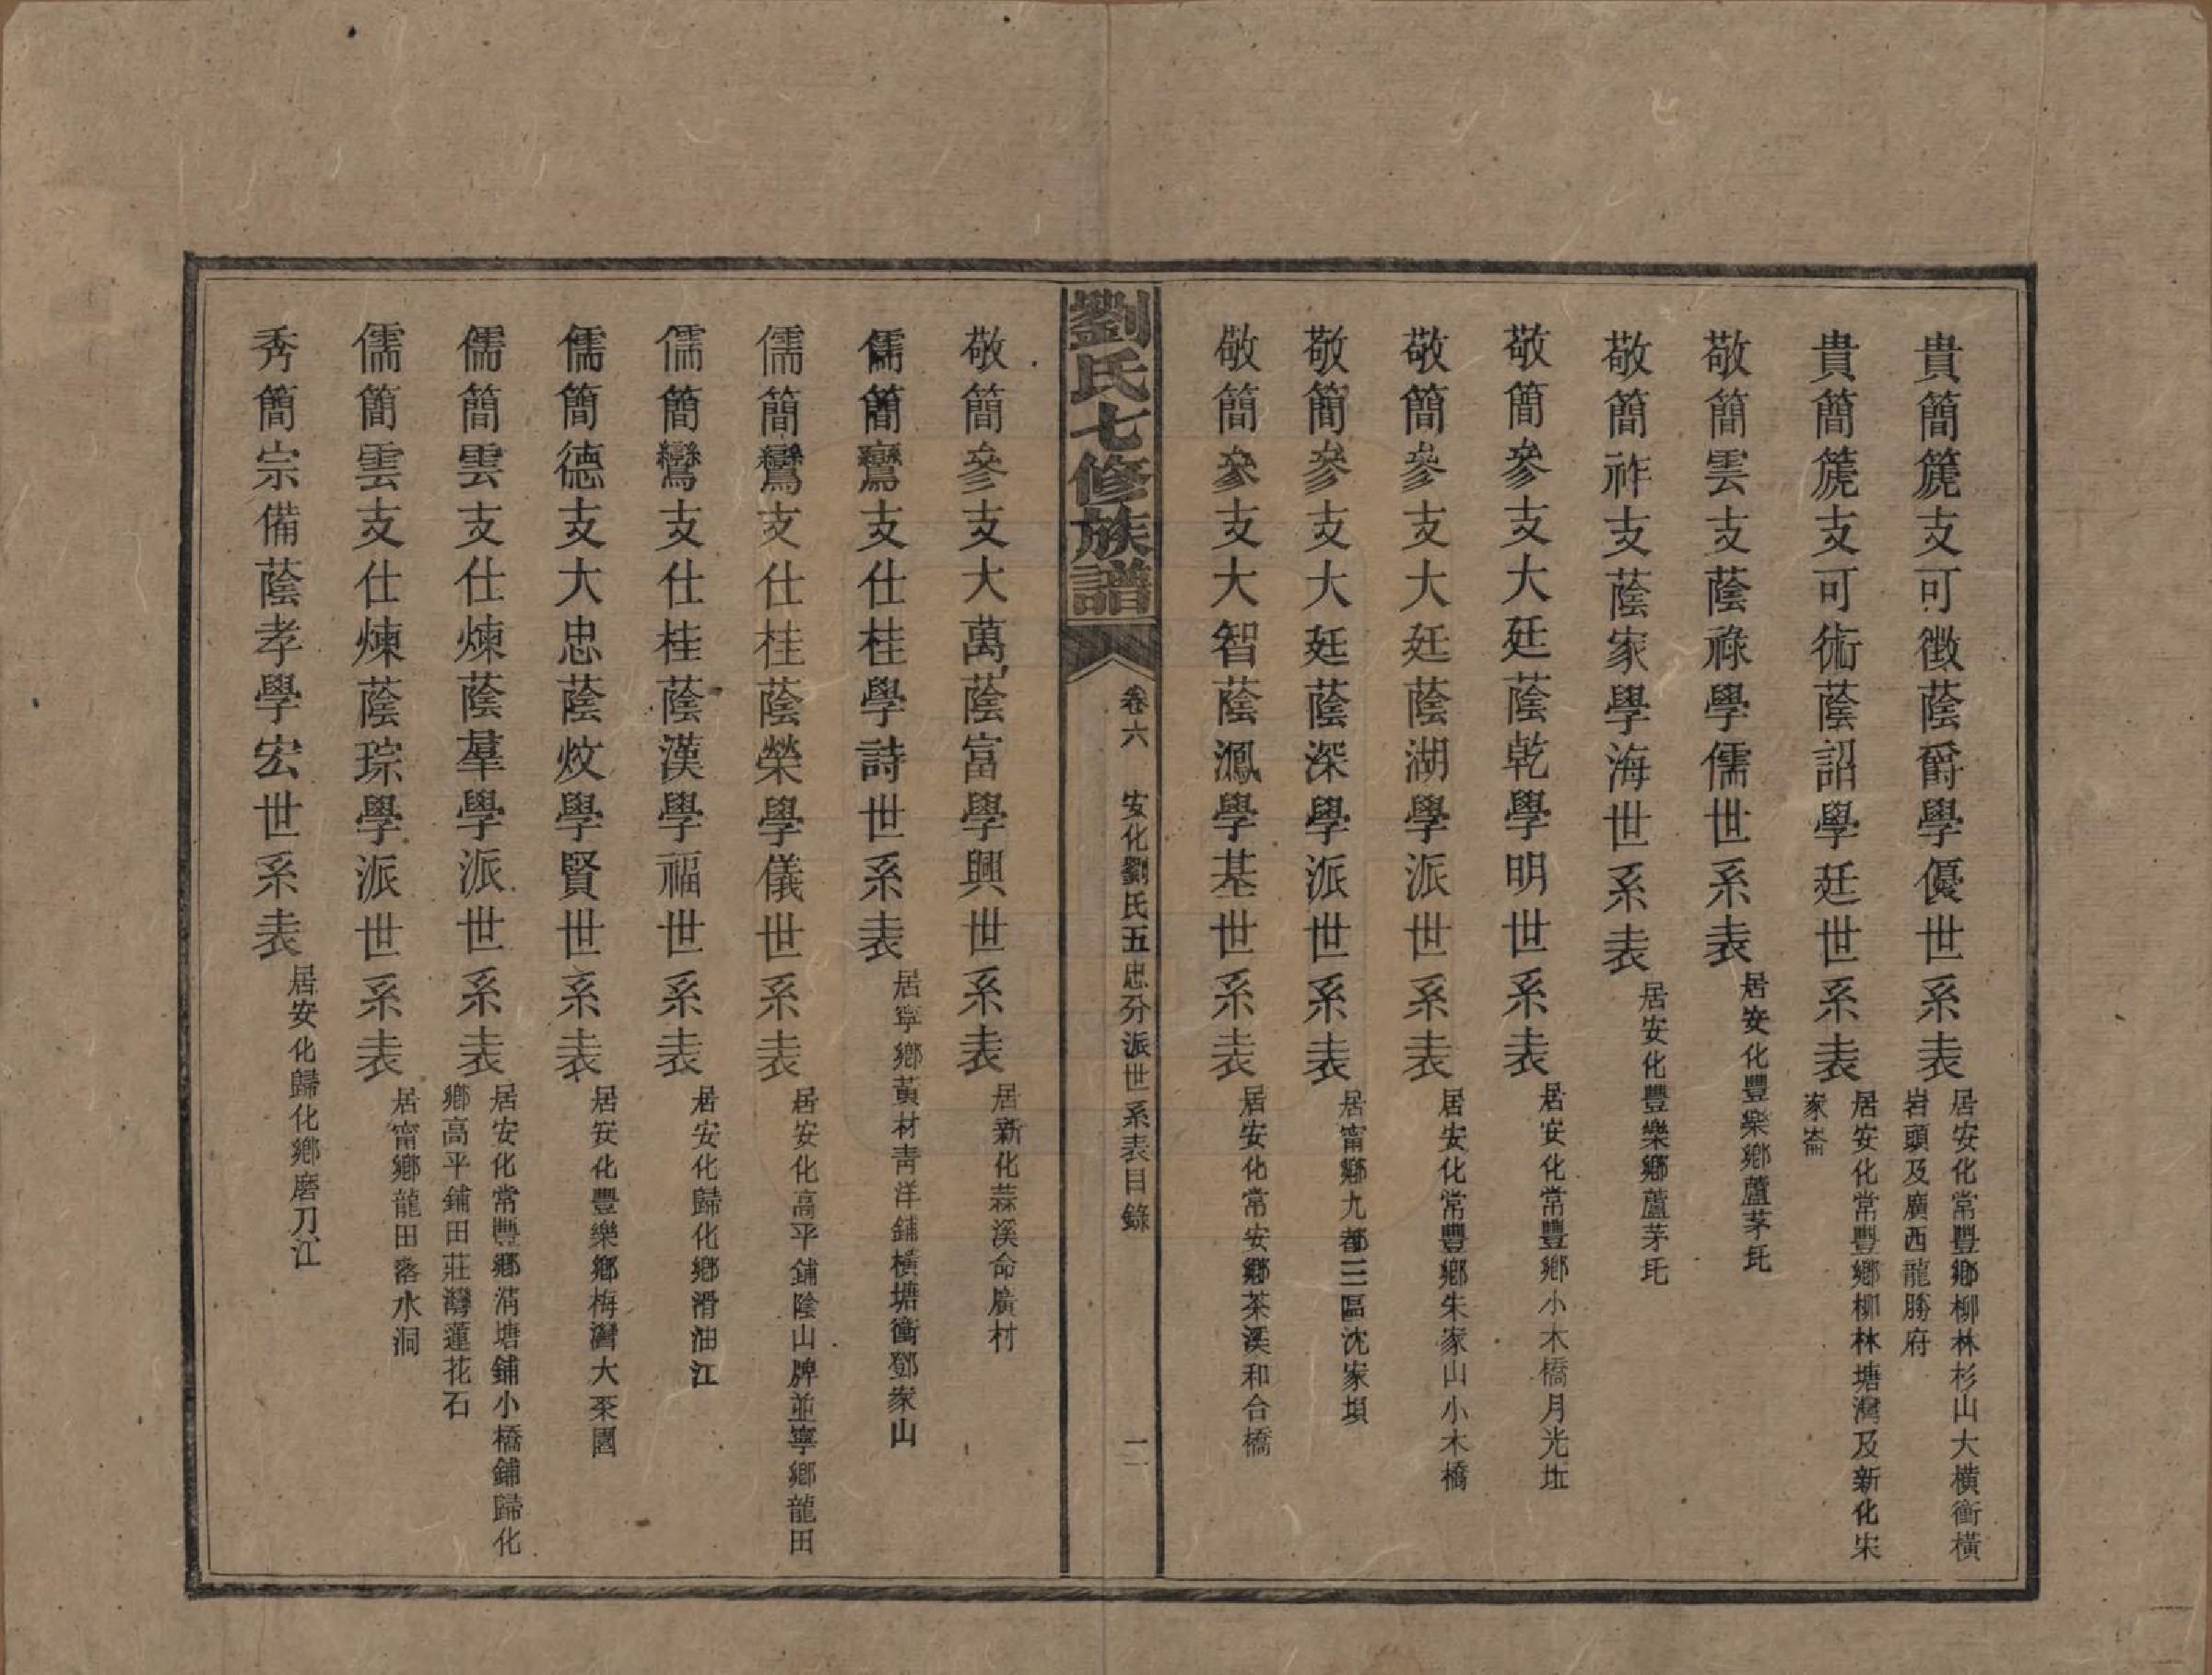 貴簡篪支可徵蔭爵學優世系表 居安化常豐鄉柳林杉山大橫衝橫岩頭及廣西龍勝府
貴簡篪支可術蔭詔學廷世系表 居安化常豐鄉柳林塘灣及新化宋家崙
敬簡雲支蔭祿學儒世系表 居安化豐樂鄉蘆茅㘰
敬簡祚支蔭家學海世系表 居安化豐樂鄉蘆茅㘰
敬簡參支大廷蔭乾學明世系表 居安化常豐鄉小木橋月光坵
敬簡參支大廷蔭湖學派世系表 居安化常豐鄉朱家山小木橋
敬簡參支大廷蔭深學派世系表 居甯鄉九都三區沈家垻
敬簡參支大智蔭鳳學基世系表 居安化常安鄉茶溪和合橋
劉氏七修族譜 卷六 安化劉氏五忠分派世系表目錄 二
敬簡參支大萬蔭富學興世系表 居新化蒜溪命廣村
儒簡鸞支仕桂學詩世系表 居寧鄉黃材青洋鋪橫塘衝鄧家山
儒簡鸞支仕桂蔭榮學儀世系表 居安化高平鋪陰山牌並寧鄉龍田
儒簡鸞支仕桂蔭漢學福世系表 居安化歸化鄉滑油江
儒簡德支大忠蔭炆學賢世系表 居安化豐樂鄉梅灣大茶園
儒簡雲支仕煉蔭羣學派世系表 居安化常豐鄉清塘鋪小橋鋪歸化鄉高平鋪田莊灣蓮花石
儒簡雲支仕煉蔭琮學派世系表 居甯鄉龍田落水洞
秀簡宗備蔭孝學宏世系表 居安化歸化鄉磨刀江